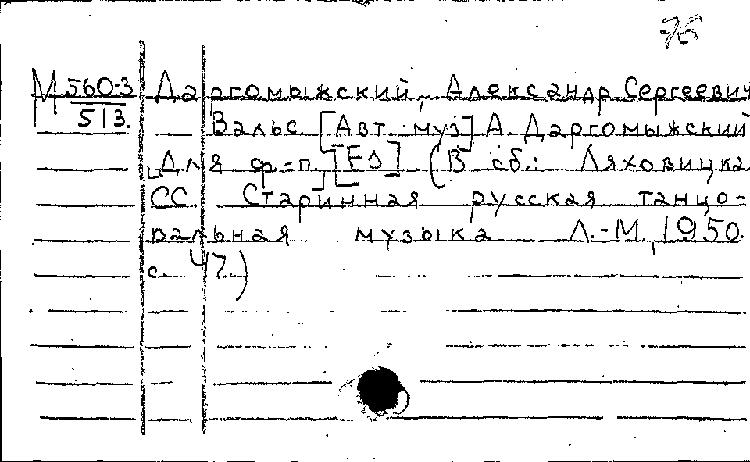 76
М 560-3 Даргомыжский, Александр Сергеевич
513. Вальс [Авт. муз] А. Даргомыжский
Для ф-п, [Es] (В сб.: Ляховицка
СС. Старинная русская танцо-
вальная музыка Л.-М, 1950.
с. 47)